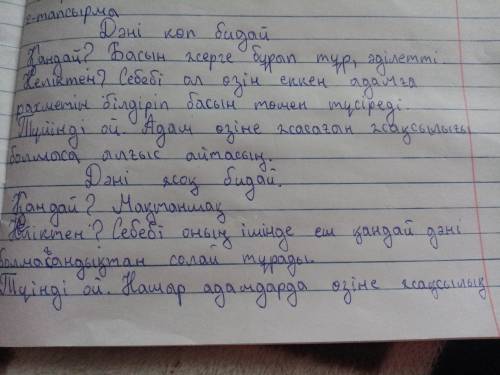 е-тапсырма
Дәні көп бидай
Қандай? Басын жерге бұрап тұр, әділетті.
Неліктен? Себебі ол өзін еккен адамға
рахметін білдіріп басын төмен түсіреді.
Түйінді ой. Адам өзіне жасаған жақсылығы
болмаса алғыс айтасың.
Дәні жоқ бидай.
Қандай? Мақтаншақ
Неліктен? Себебі оның ішінде еш қандай дәні
болмағандықтан солай тұрады.
Түйінді ой. Нашар адамдарда өзіне жақсылық